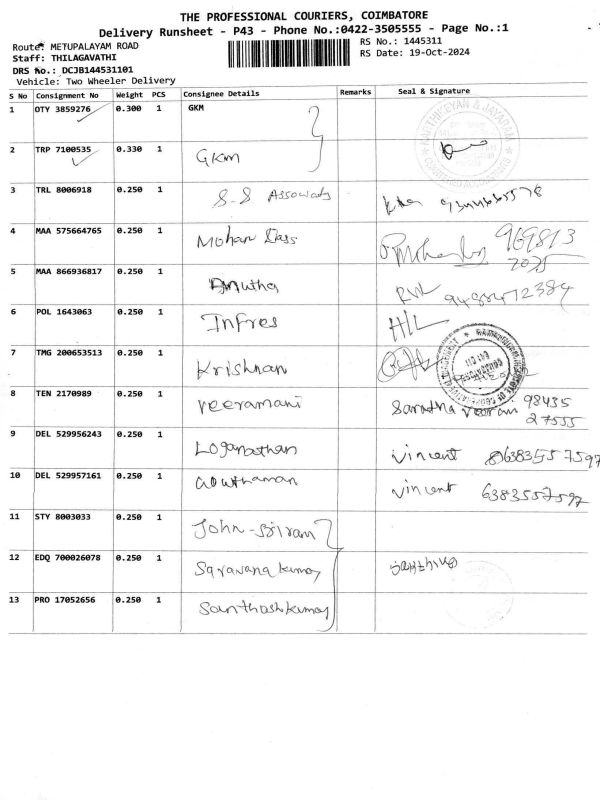 THE PROFESSIONAL COURIERS, COIMBATORE
Delivery Runsheet - P43 - Phone No.:0422-3505555 - Page No.:1
Route: METUPALAYAM ROAD
RS No.: 1445311
Staff: THILAGAVATHI
RS Date: 19-Oct-2024
DRS No.: DCJB144531101
Vehicle: Two Wheeler Delivery
S No Consignment No Weight PCS Consignee Details Remarks Seal & Signature
1 OTY 3859276 0.300 1 GKM
KARTHIKEYAN & JAYARAM
CHARTERED ACCOUNTANTS
2 TRP 7100535 0.330 1 GKM
3 TRL 8006918 0.250 1 S-S
4 MAA 575664765 0.250 1 Mohan Dass 969813
2025
5 MAA 866936817 0.250 1 Anutha 9488472384
6 POL 1643063 0.250 1 Infres H/L
7 TMG 200653513 0.250 1 Krishnan
8 TEN 2170989 0.250 1 Veeramani Saratha Veeramani 98435
27555
9 DEL 529956243 0.250 1 Loganathan Vincent 6383557597
10 DEL 529957161 0.250 1 Vincent 6383557597
11 STY 8003033 0.250 1 John-Sriram
12 EDQ 700026078 0.250 1 Saravana Kumar
13 PRO 17052656 0.250 1 Santhosh Kumar